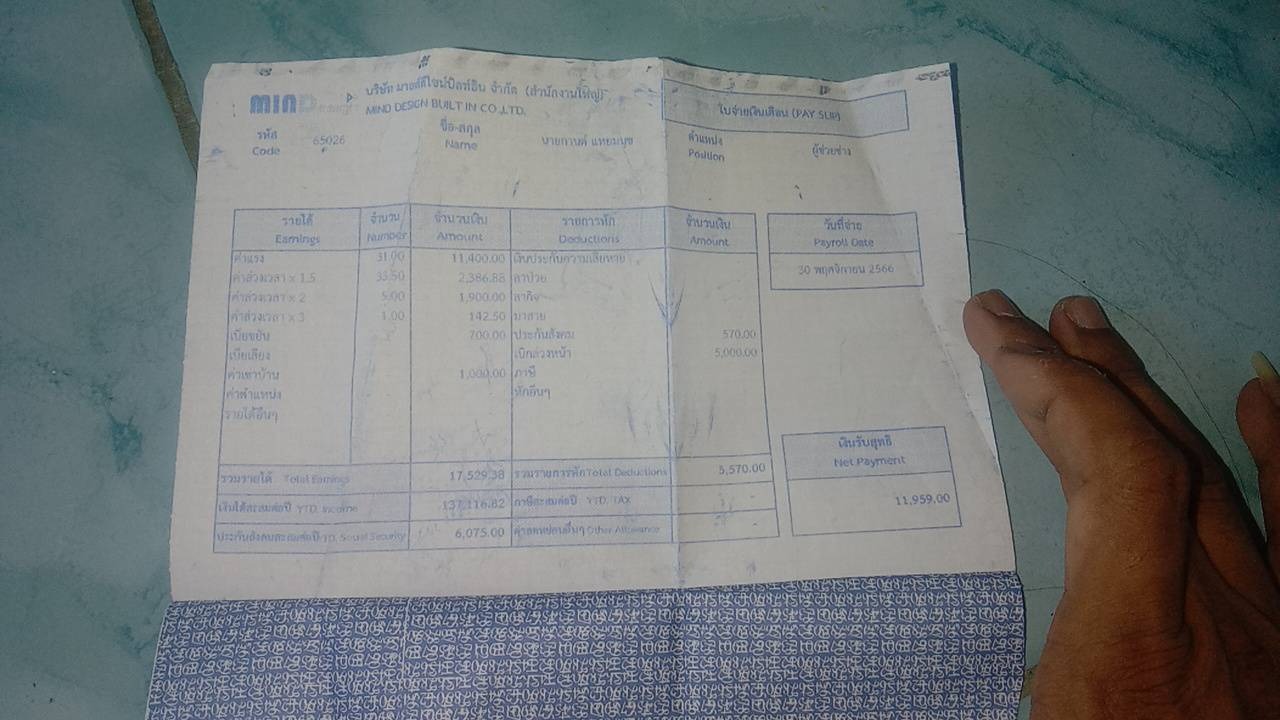 MIND
บริษัท มายด์ดีไซน์บิลท์อิน จำกัด (สำนักงานใหญ่)
MIND DESIGN BUILT IN CO.,LTD.
ใบจ่ายเงินเดือน (PAY SLIP)
รหัส 65026 ชื่อ-สกุล นายกานต์ ตำแหน่ง ผู้ช่วยช่าง
Code Name Position
รายได้ จำนวน จำนวนเงิน รายการหัก จำนวนเงิน วันที่จ่าย
Earnings Number Amount Deductions Amount Payroll Date
ค่าแรง 31.00 11,400.00 เงินประกันความเสียหาย
30 พฤศจิกายน 2566
ค่าล่วงเวลา x 1.5 33.50 2,386.88 ลาป่วย
ค่าล่วงเวลา x 2 5.00 1,900.00 ลากิจ
ค่าล่วงเวลา x 3 1.00 142.50 มาสาย
เบี้ยขยัน 700.00 ประกันสังคม 570.00
เบี้ยเลี้ยง เบิกล่วงหน้า 5,000.00
ค่าเช่าบ้าน 1,000.00 ภาษี
ค่าตำแหน่ง หักอื่นๆ
รายได้อื่นๆ
เงินรับสุทธิ
Net Payment
รวมรายได้ Total Earnings 17,529.38 รวมรายการหัก Total Deductions 5,570.00
11,959.00
เงินได้สะสมต่อปี YTD. Income 137,116.82 ภาษีสะสมต่อปี YTD. TAX
ประกันสังคมสะสมต่อปี YTD. Social Security 6,075.00 ค่าลดหย่อนอื่นๆ Other Allowance